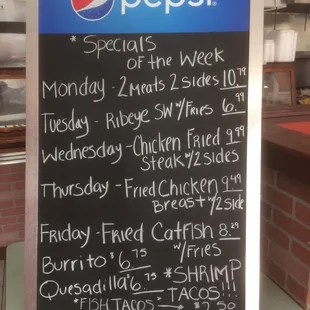 pepsi
* Specials
of the Week
Monday - 2 Meats 2 sides 10.79
Tuesday - Ribeye SW w/Fries 6.99
Wednesday - Chicken Fried 9.99
Steak w/2 sides
Thursday - Fried Chicken 9.49
Breast w/2 side
Friday - Fried Catfish 8.29
w/Fries
Burrito $6.75
Quesadilla 6.75 *SHRIMP
TACOS!!!
*FISH TACOS → $2.50